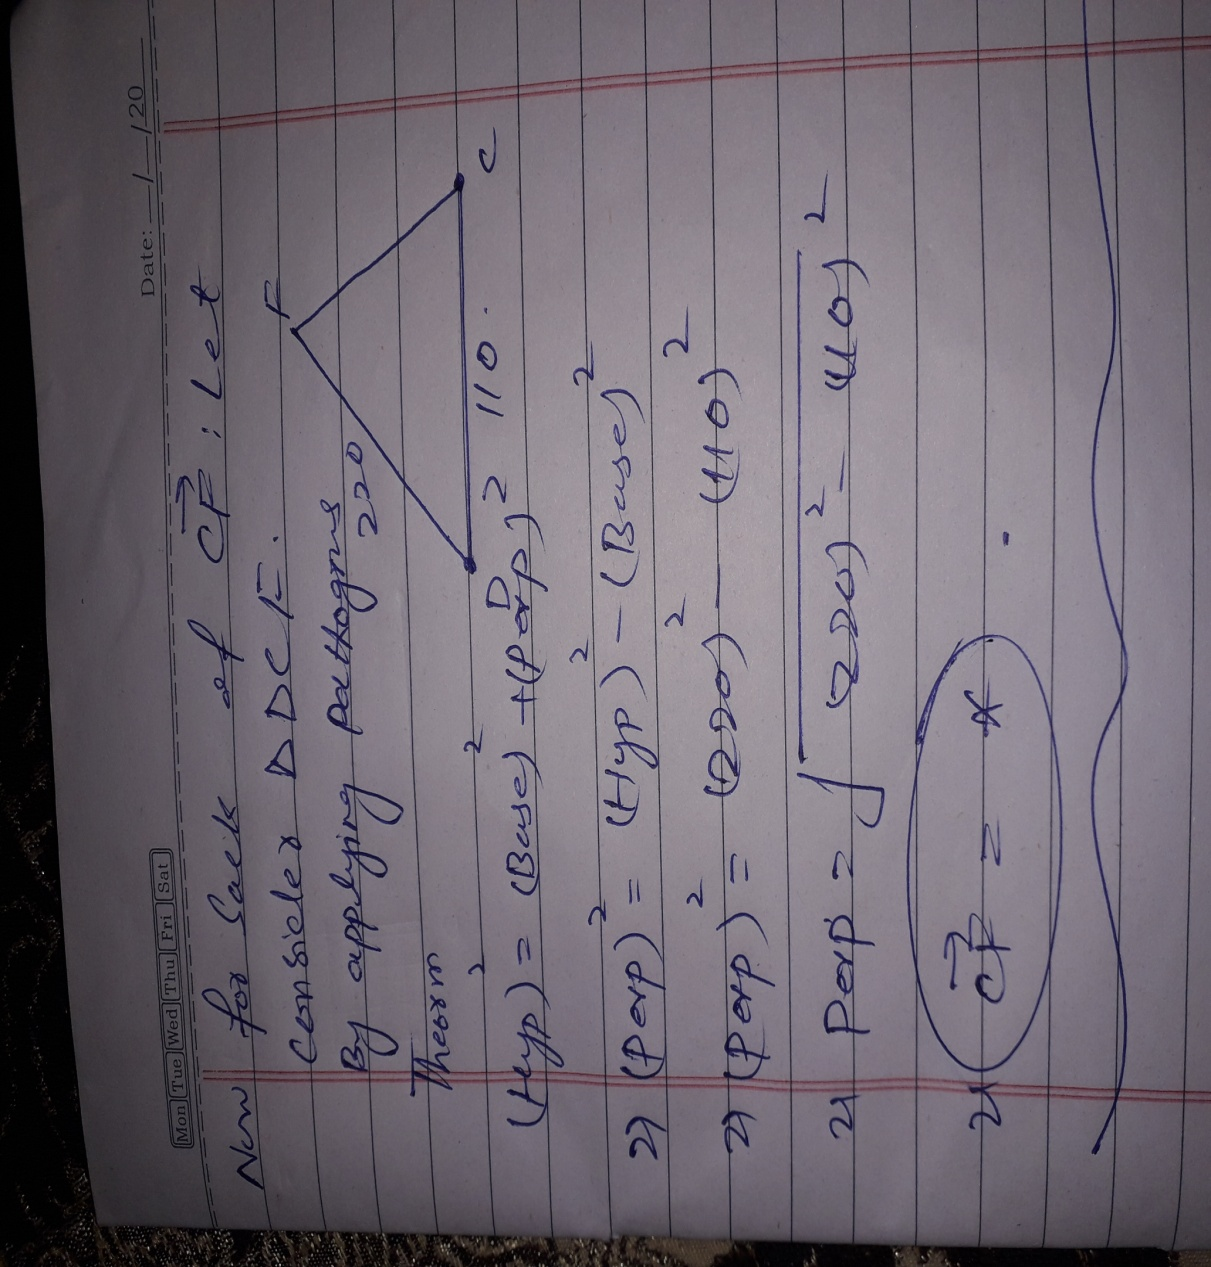 Mon Tue Wed Thu Fri Sat
Date: __/__/20
Now for Sack of CF : Let
Consider Δ DCF.
By applying pathogrus
Theorm
F
220
D
110.
C
(Hyp)² = (Base)² + (Perp)²
⇒ (Perp)² = (Hyp)² - (Base)²
⇒ (Perp)² = (220)² - (110)²
⇒ Perp = √(220)² - (110)²
⇒ CF =